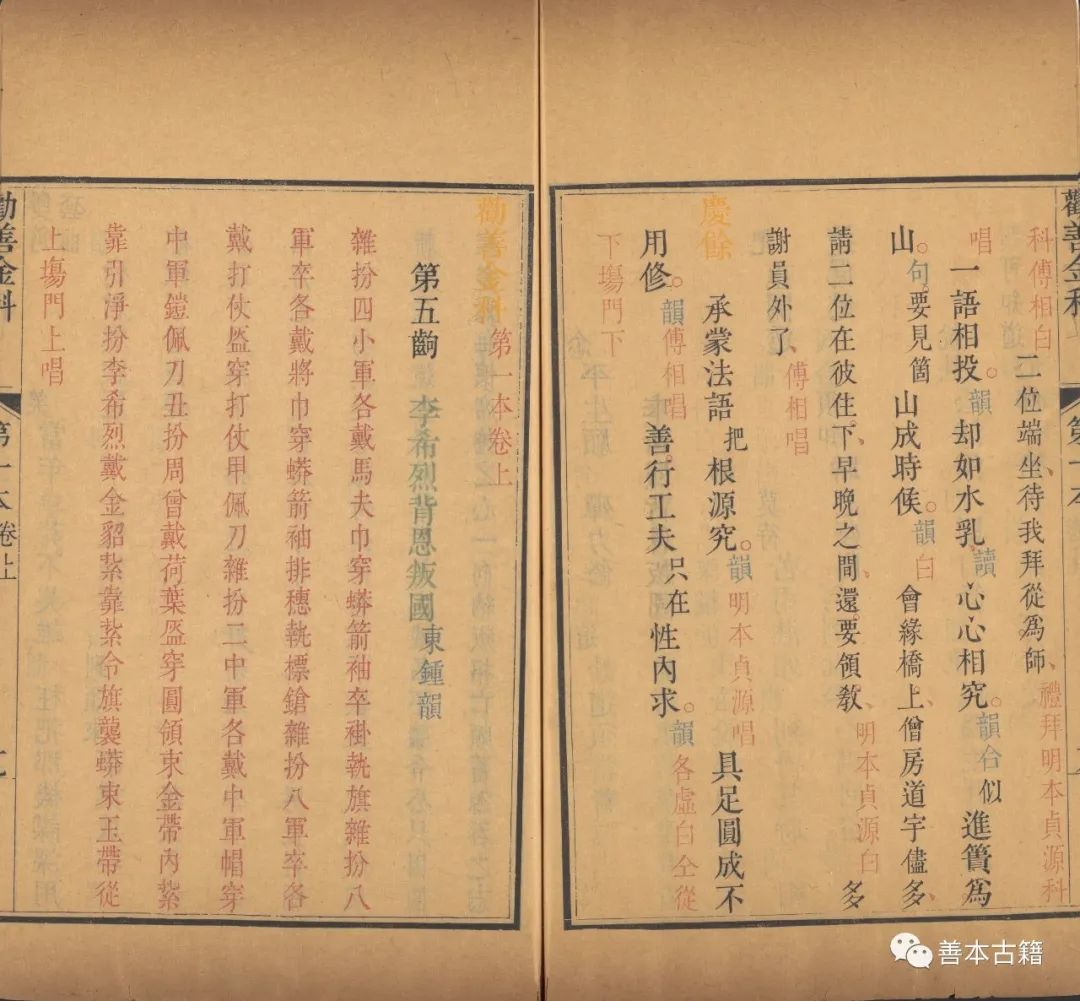 勸善金科
第一本卷上
科傅相白二位端坐、待我拜從爲師、禮拜明本貞源科
唱一語相投。韻却如水乳。讀心心相究。韻合似進簣爲
山。句要見箇山成時候。韻白會緣橋上、僧房道宇儘多、
請二位在彼住下、早晚之間、還要領敎、明本貞源白多
謝員外了、傅相唱
慶餘承蒙法語把根源究。韻明本貞源唱具足圓成不
用修。韻傅相唱善行工夫只在性內求。韻各虛白仝從
下塲門下
勸善金科第一本卷上
第五齣李希烈背恩叛國東鍾韻
雜扮四小軍各戴馬夫巾穿蟒箭袖卒褂執旗雜扮八
軍卒各戴將巾穿蟒箭袖排穗執標鎗雜扮八軍卒各
戴打仗盔穿打仗甲佩刀雜扮二中軍各戴中軍帽穿
中軍鎧佩刀丑扮周曾戴荷葉盔穿圓領束金帶內紮
靠引淨扮李希烈戴金貂紮靠紮令旗襲蟒束玉帶從
上塲門上唱
勸善金科
第一本卷上
善本古籍